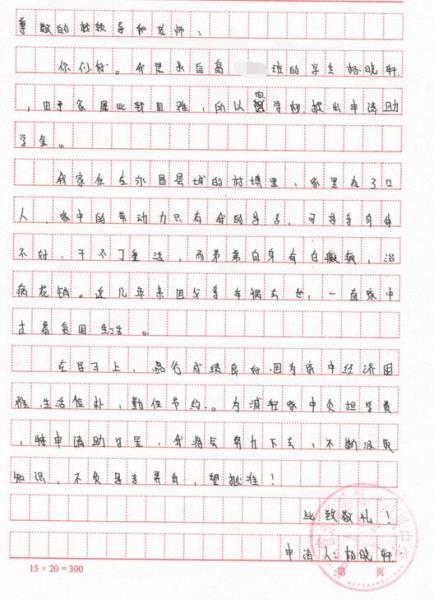 尊敬的校领导和老师：
你们好。我是来自高 班的学生杨晓轩
，由于家庭比较困难，所以向学校提出申请助
学金。
我家住在永昌县城的村镇里，家里有3口
人，家中的劳动力只有我的母亲，可母亲身体
不好，干不了重活，而弟弟自身有白癜疯，治
病花钱。近几年来因父亲车祸去世，一直家中
过着贫困生活。
在学习上，品行成绩良好，因为家中经济困
难，生活俭朴，勤俭节约。为减轻家中负担学费
，特申请助学金，我将会努力下去，不断汲取
知识，不负母亲养育，望批准！
此致敬礼！
申请人：杨晓轩
15×20=300
第 页